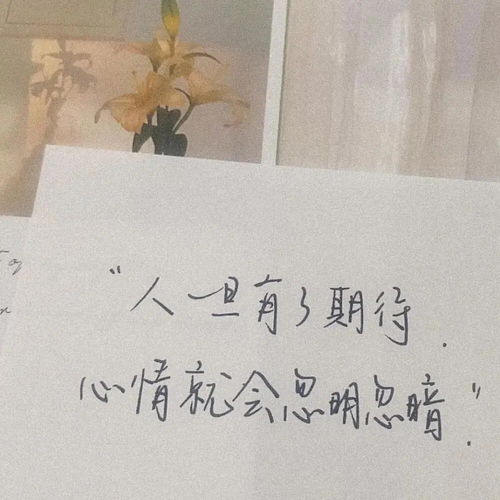 “人一旦有了期待.
心情就会忽明忽暗.”